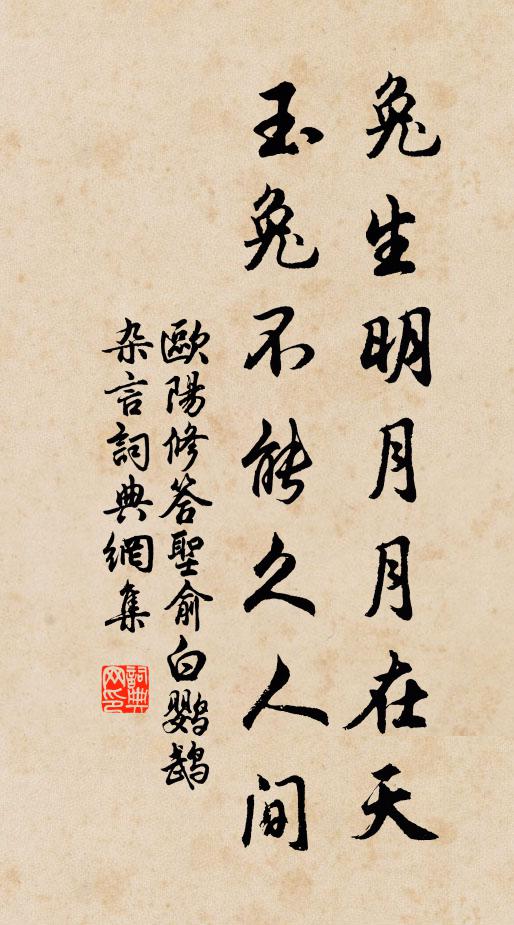 兔生明月月在天
玉兔不能久人间
歐陽修答聖俞白鹦鹉
杂言詞典網集
詞典网印